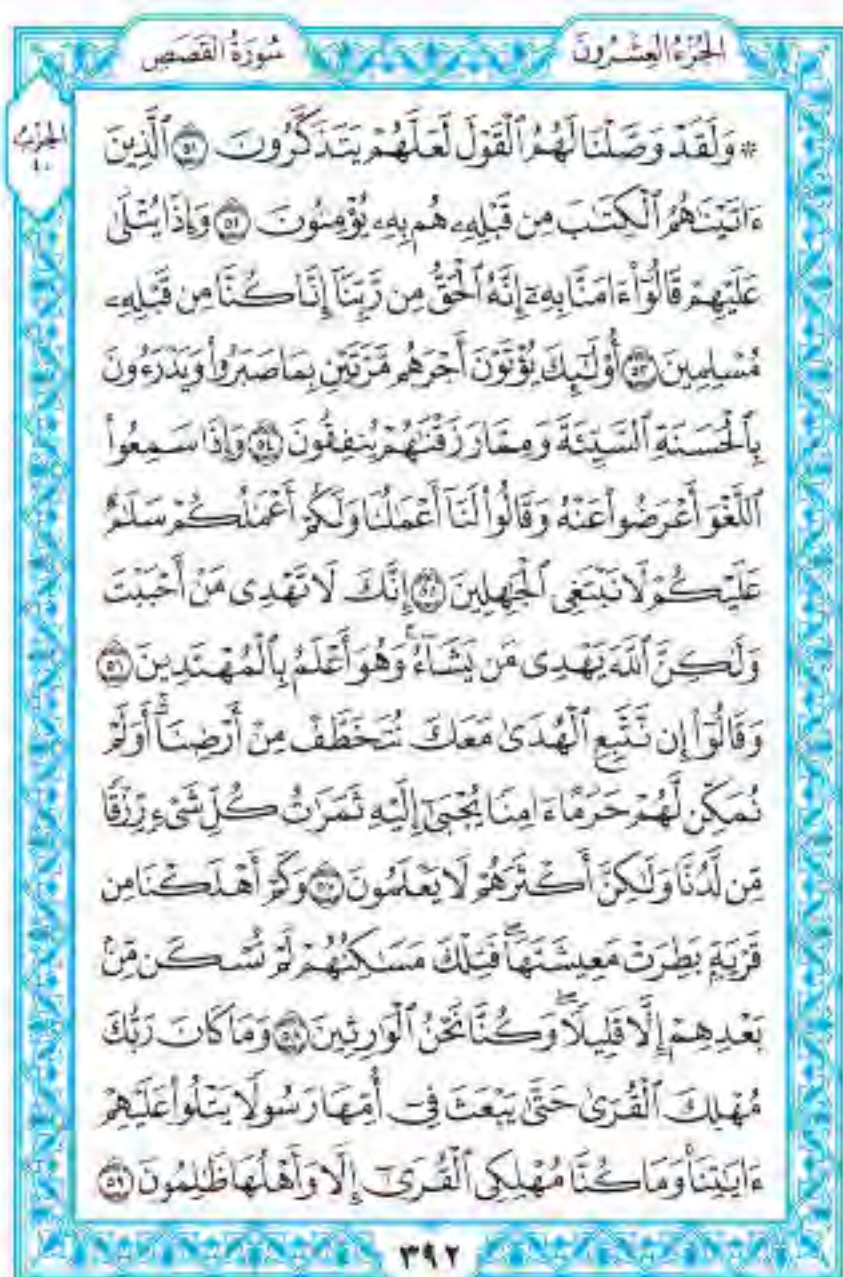 الجُزْءُ العِشْرُونَ
سُورَةُ القَصَصِ
الحِزْبُ
٤٠
۞ وَلَقَدْ وَصَّلْنَا لَهُمُ ٱلْقَوْلَ لَعَلَّهُمْ يَتَذَكَّرُونَ ۝٥١ ٱلَّذِينَ
ءَاتَيْنَٰهُمُ ٱلْكِتَٰبَ مِن قَبْلِهِۦ هُم بِهِۦ يُؤْمِنُونَ ۝٥٢ وَإِذَا يُتْلَىٰ
عَلَيْهِمْ قَالُوٓا۟ ءَامَنَّا بِهِۦٓ إِنَّهُ ٱلْحَقُّ مِن رَّبِّنَآ إِنَّا كُنَّا مِن قَبْلِهِۦ
مُسْلِمِينَ ۝٥٣ أُو۟لَٰٓئِكَ يُؤْتَوْنَ أَجْرَهُم مَّرَّتَيْنِ بِمَا صَبَرُوا۟ وَيَدْرَءُونَ
بِٱلْحَسَنَةِ ٱلسَّيِّئَةَ وَمِمَّا رَزَقْنَٰهُمْ يُنفِقُونَ ۝٥٤ وَإِذَا سَمِعُوا۟
ٱللَّغْوَ أَعْرَضُوا۟ عَنْهُ وَقَالُوا۟ لَنَآ أَعْمَٰلُنَا وَلَكُمْ أَعْمَٰلُكُمْ سَلَٰمٌ
عَلَيْكُمْ لَا نَبْتَغِى ٱلْجَٰهِلِينَ ۝٥٥ إِنَّكَ لَا تَهْدِى مَنْ أَحْبَبْتَ
وَلَٰكِنَّ ٱللَّهَ يَهْدِى مَن يَشَآءُ ۚ وَهُوَ أَعْلَمُ بِٱلْمُهْتَدِينَ ۝٥٦
وَقَالُوٓا۟ إِن نَّتَّبِعِ ٱلْهُدَىٰ مَعَكَ نُتَخَطَّفْ مِنْ أَرْضِنَآ ۚ أَوَلَمْ
نُمَكِّن لَّهُمْ حَرَمًا ءَامِنًا يُجْبَىٰٓ إِلَيْهِ ثَمَرَٰتُ كُلِّ شَىْءٍ رِّزْقًا
مِّن لَّدُنَّا وَلَٰكِنَّ أَكْثَرَهُمْ لَا يَعْلَمُونَ ۝٥٧ وَكَمْ أَهْلَكْنَا مِن
قَرْيَةٍۭ بَطِرَتْ مَعِيشَتَهَا ۖ فَتِلْكَ مَسَٰكِنُهُمْ لَمْ تُسْكَن مِّنۢ
بَعْدِهِمْ إِلَّا قَلِيلًا ۖ وَكُنَّا نَحْنُ ٱلْوَٰرِثِينَ ۝٥٨ وَمَا كَانَ رَبُّكَ
مُهْلِكَ ٱلْقُرَىٰ حَتَّىٰ يَبْعَثَ فِىٓ أُمِّهَا رَسُولًا يَتْلُوا۟ عَلَيْهِمْ
ءَايَٰتِنَا ۚ وَمَا كُنَّا مُهْلِكِى ٱلْقُرَىٰٓ إِلَّا وَأَهْلُهَا ظَٰلِمُونَ ۝٥٩
٣٩٢